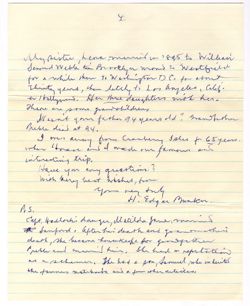 4
My sister, Lena, married in 1895 to William
Samuel Webb in Brooklyn moved to Westfield
for a while then to Washington D.C. for about
thirty years, then lately to Los Angeles, Calif.
or Hollywood. Her three daughters with her.
There are some grandchildren.
Wasn't your father 94 years old? Grandfather
Bunker died at 84.
I was away from Cranberry Isles for 65 years
when I and I made our famous and
interesting trip.
Have you any questions?
With very best wishes, from
Yours very truly
H. Edgar Bunker
P.S.
Capt. Hadlock's daughter, Matilda Jane, married
Sanford. After his death and grandmother's
death, she became housekeeper for grandfather
Bunker and married him. She had a reputation
as a schemer. She had a son, Samuel, who inherited
the famous and a few other articles.